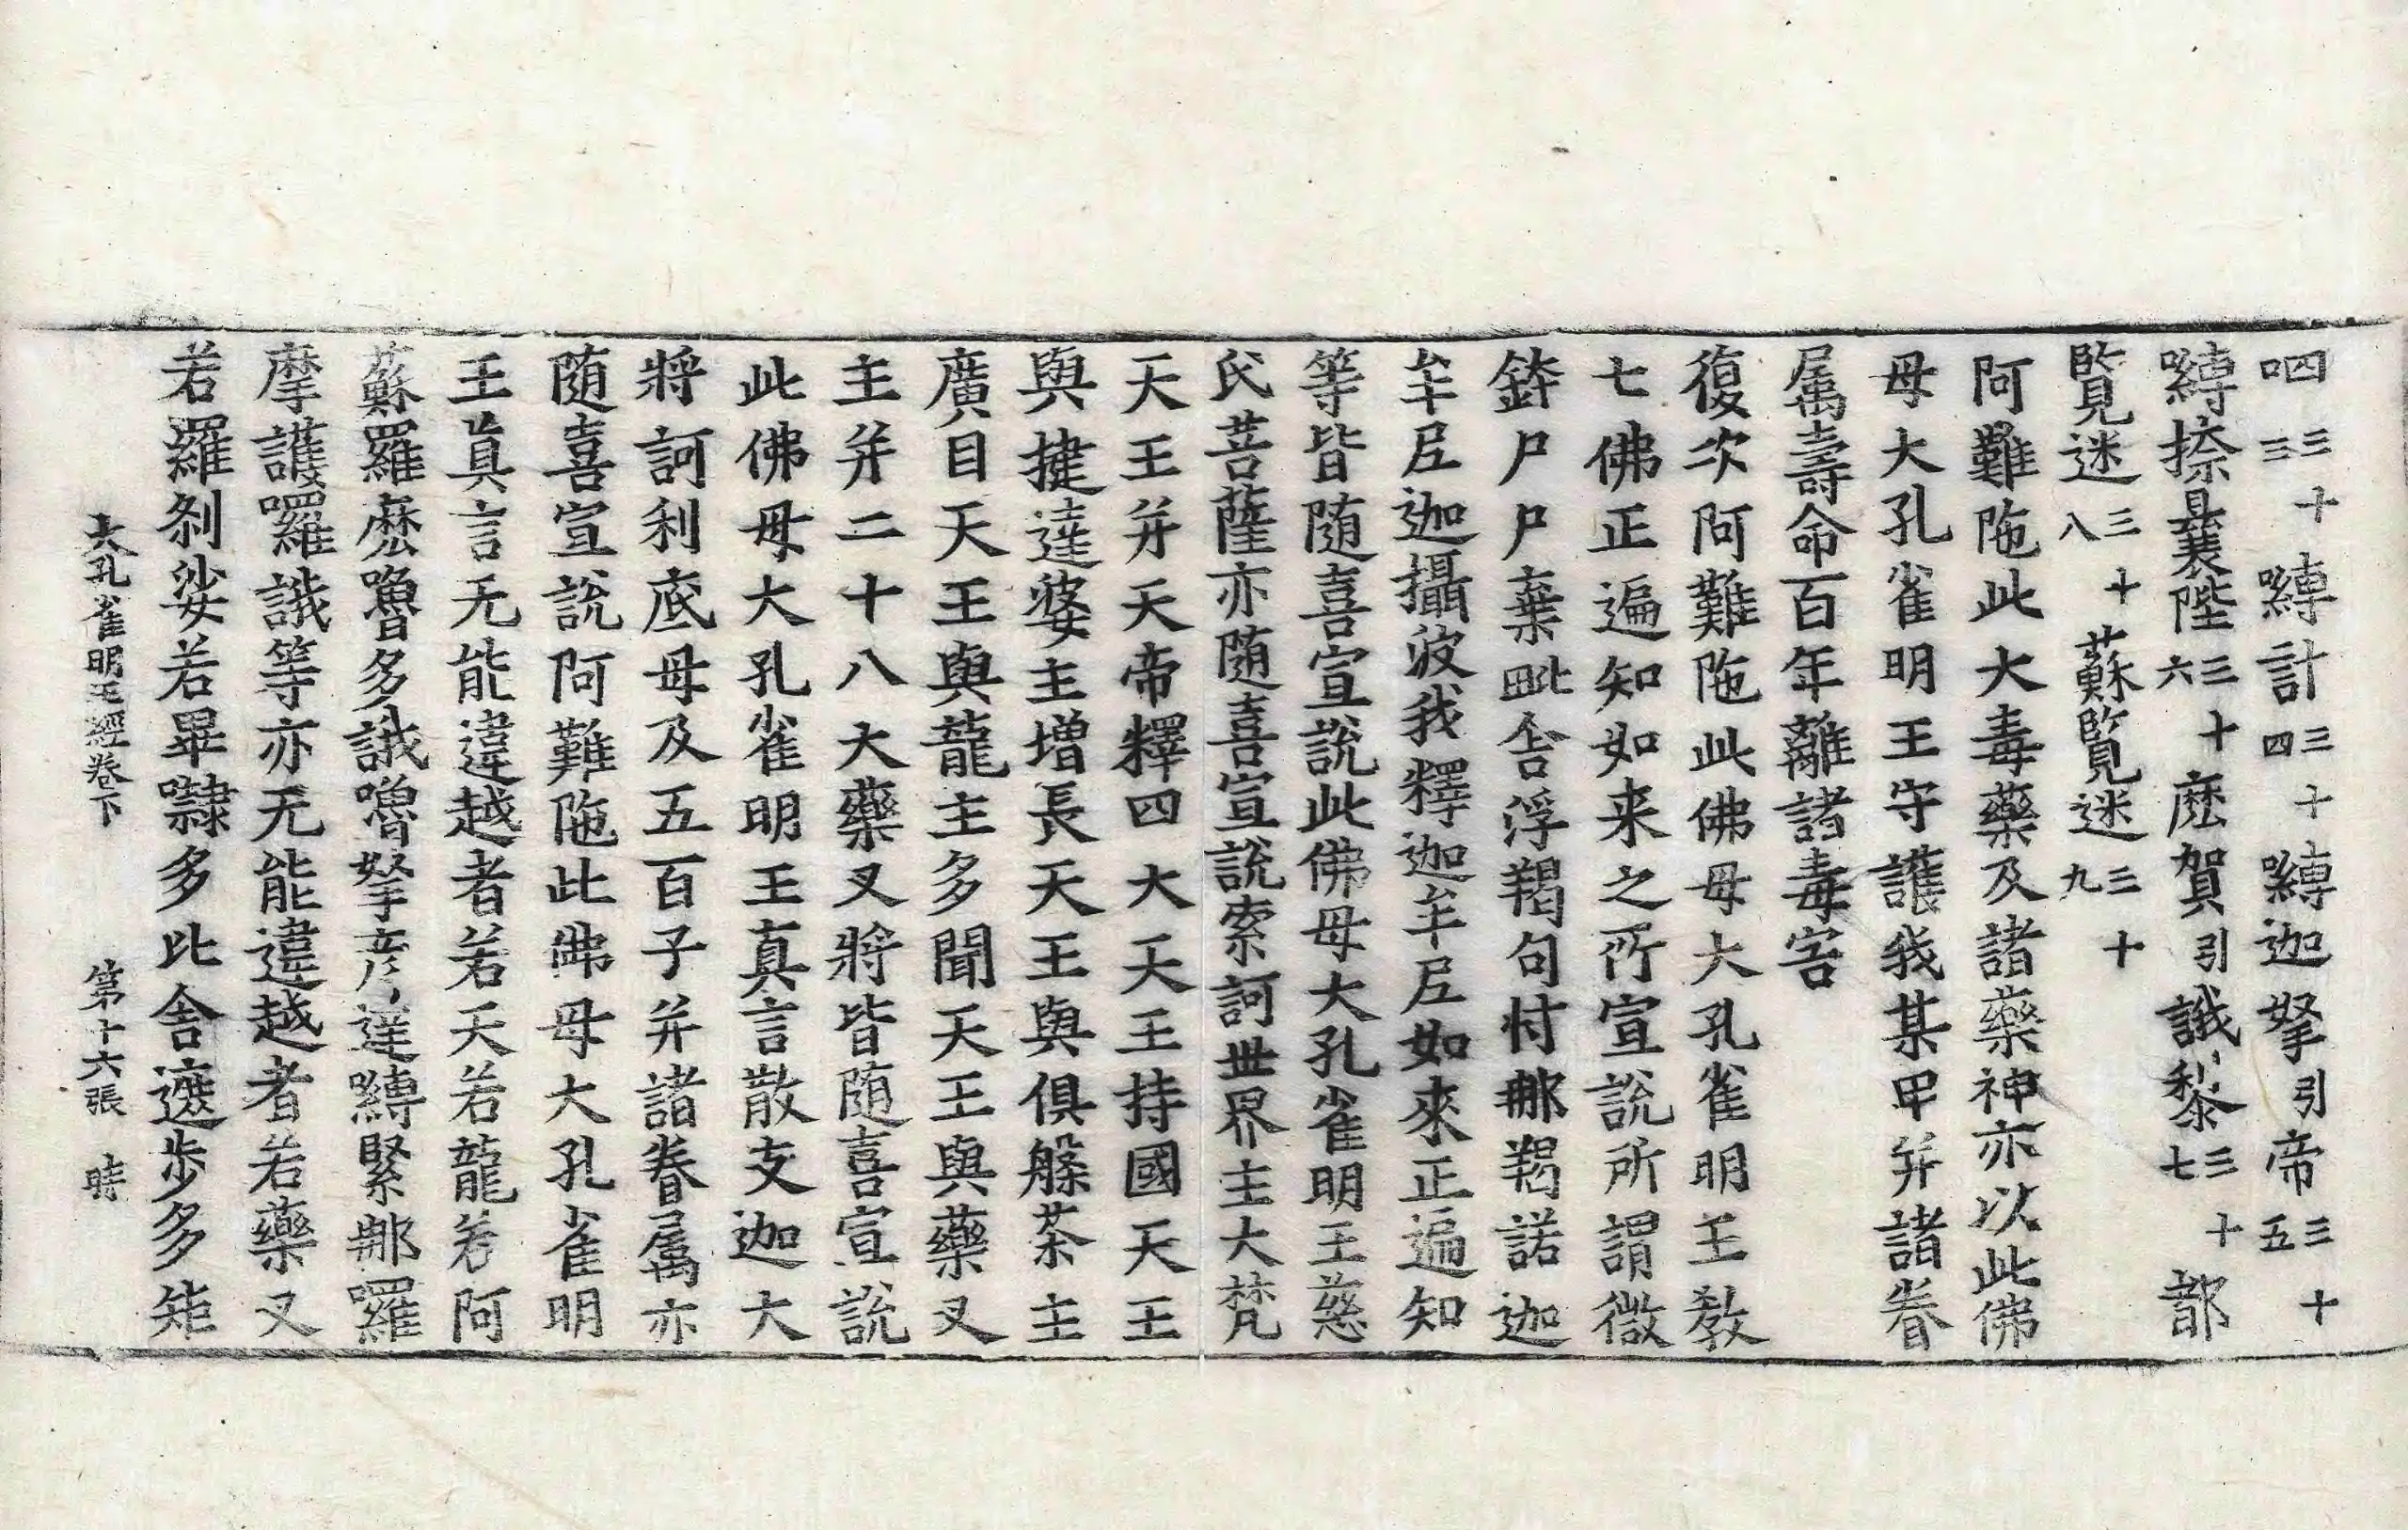 呬三十三嚩計三十四嚩迦拏引帝三十五
嚩捺曩陛三十六麽賀引誐黎三十七部
覽迷三十八蘇覽迷三十九
阿難陁此大毒藥及諸藥神亦以此佛
母大孔雀明王守護我某甲并諸眷
属壽命百年離諸毒害
復次阿難陁此佛母大孔雀明王教
七佛正遍知如来之所宣說所謂微
鉢尸尸棄毗舎浮羯句忖那羯諾迦
牟尼迦攝波我釋迦牟尼如來正遍知
等皆随喜宣說此佛母大孔雀明王慈
氏菩薩亦随喜宣說索訶世界主大梵
天王并天帝釋四大天王持國天王
與揵達婆主增長天王與俱槃茶主
廣目天王與龍主多聞天王與藥叉
主并二十八大藥叉將皆随喜宣說
此佛母大孔雀明王真言散支迦大
將訶利底母及五百子并諸眷属亦
随喜宣說阿難陁此佛母大孔雀明
王真言无能違越者若天若龍若阿
蘇羅麽嚕多誐嚕拏彥達嚩緊那羅
摩護囉誐等亦无能違越者若藥叉
若羅剎娑若畢㘑多比舎遮歩多矩
大孔雀明王經卷下 第十六張 時